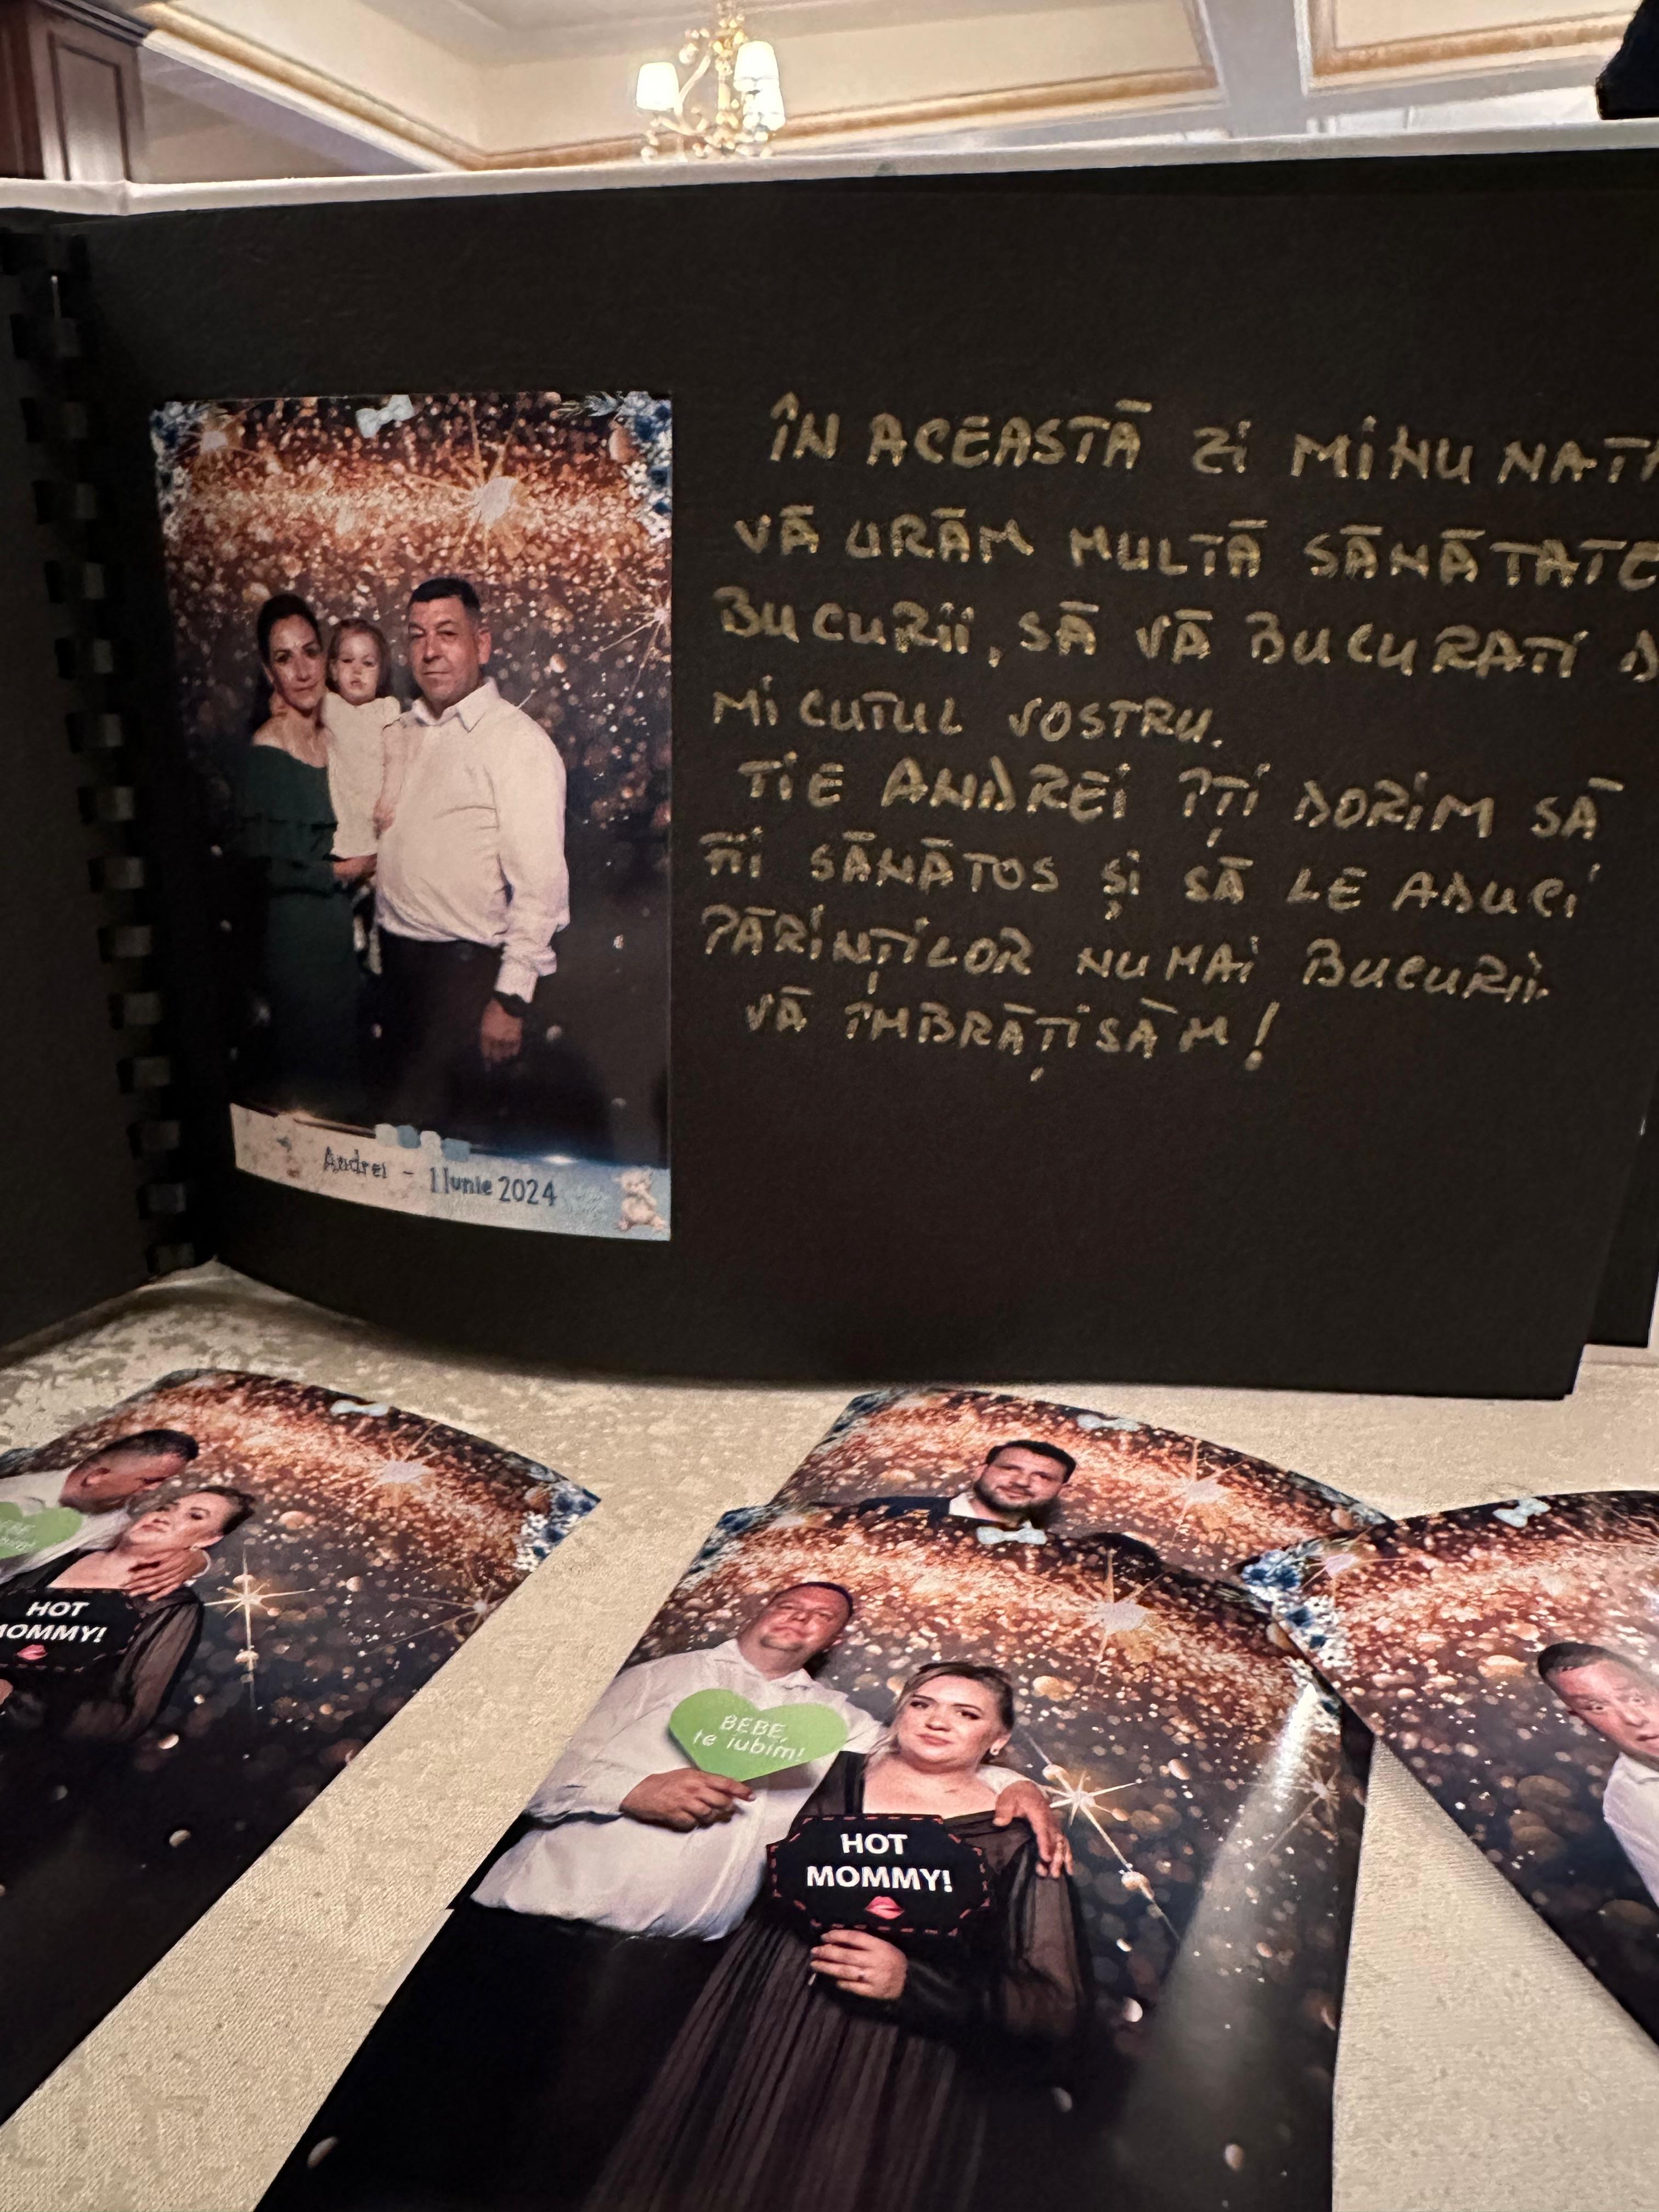 ÎN ACEASTĂ ZI MINUNAT
VĂ URĂM MULTĂ SĂNĂTATE
BUCURII, SĂ VĂ BUCURATI D
MICUTUL VOSTRU.
TIE ANDREI ÎȚI DORIM SĂ
FII SĂNĂTOS ȘI SĂ LE ADUCI
PĂRINȚILOR NUMAI BUCURII.
VĂ ÎMBRĂȚISĂM!
Andrei - 1 Iunie 2024
HOT
MOMMY!
BEBE,
te iubim!
HOT
MOMMY!